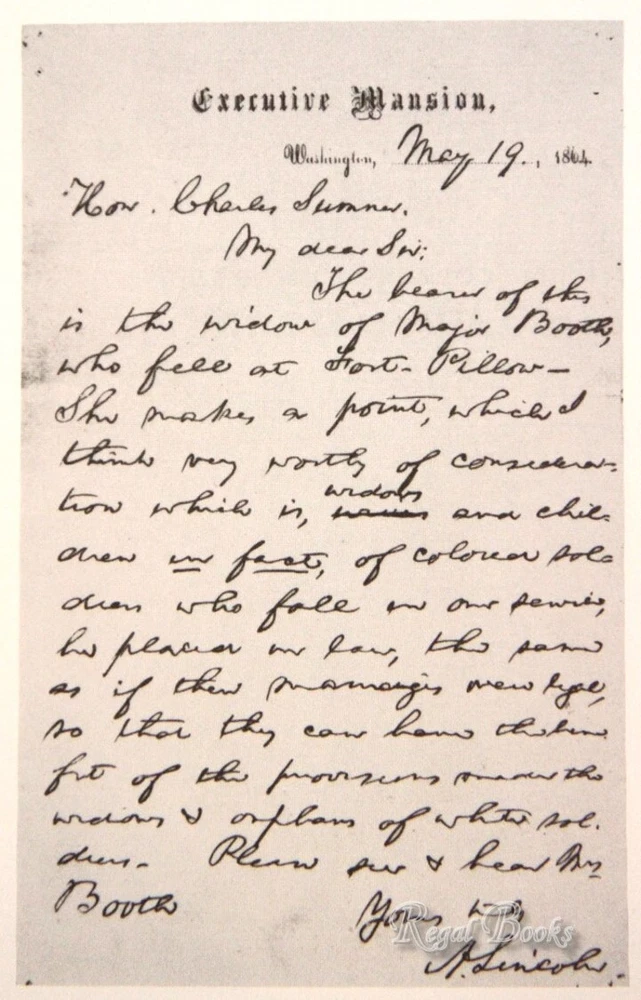 Executive Mansion,
Washington, May 19., 1864.
Hon. Charles Sumner,
My dear Sir:
The bearer of this
is the widow of Major Booth,
who fell at Fort-Pillow—
She makes a point, which I
think very worthy of considera-
tion which is, widows and chil-
dren in fact, of colored sol-
diers who fall in our service,
be placed in law, the same
as if their marriages were legal,
so that they can have the bene
fit of the provisions made the
widows & orphans of white sol-
diers. Please see & hear Mrs
Booth
Yours truly
A. Lincoln.
Regal Books